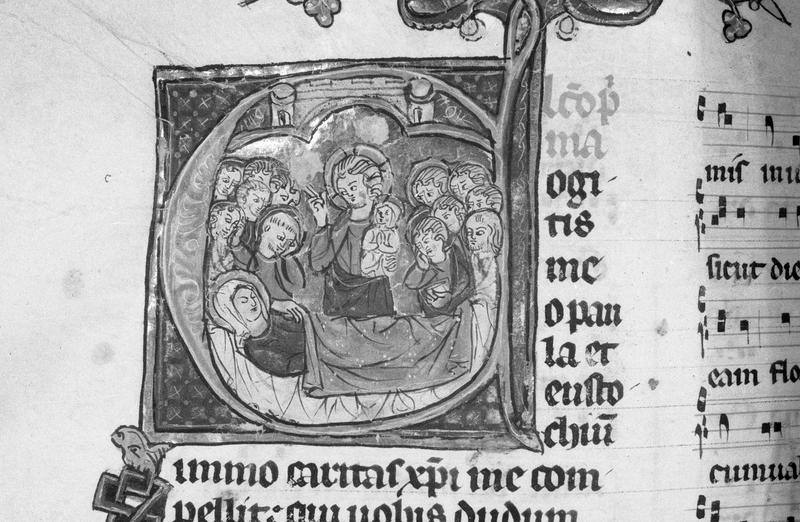 ogi
tis
me
o pau
la et
eusto
chiū
immo caritas xp̄i me com
pellit: qui uobis dudum
mis
sicut die
eam flo